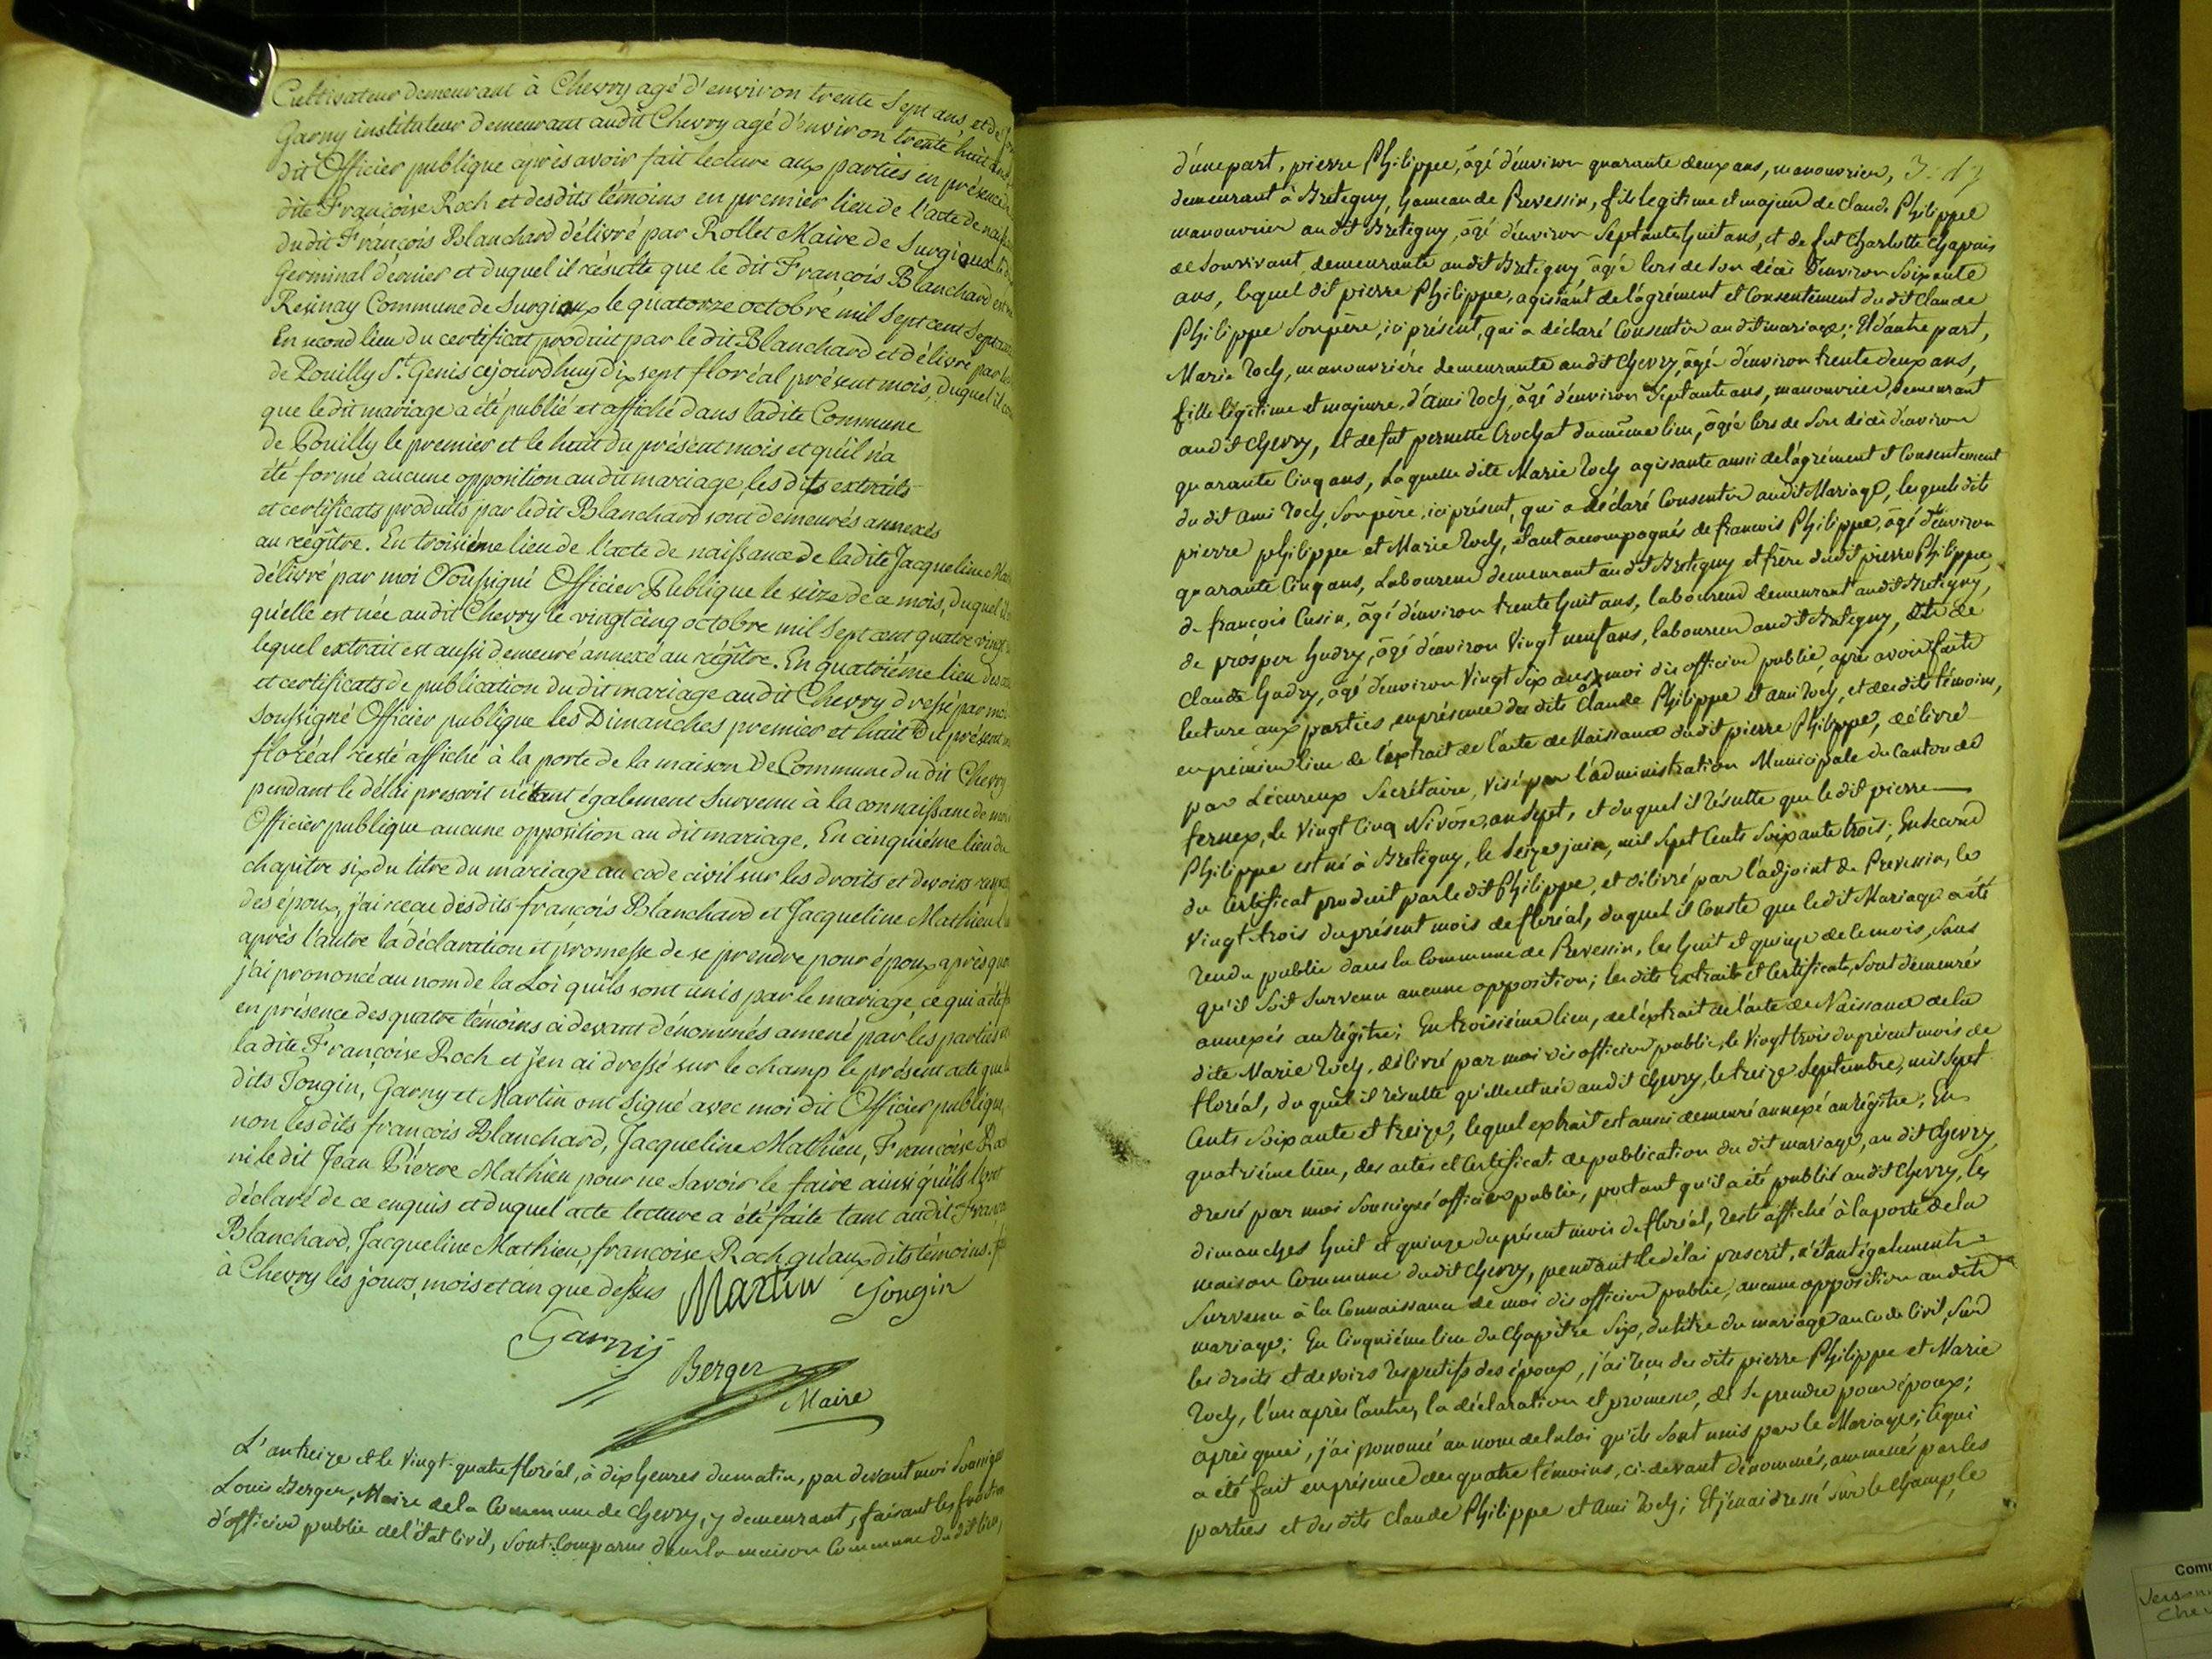 Cultivateur demeurant à Chevry agé d'environ trente Sept ans et de
Garny instituteur demeurant audit Chevry agé d'environ trente huit ans
dit Officier publique après avoir fait lecture aux parties en présence
dite Françoise Roch et desdits témoins en premier lieu de l'acte de
dudit François Blanchard délivré par Rollet Maire de Surgioux
Germinal dernier et duquel il résulte que le dit François Blanchard est
Resinay Commune de Surgioux le quatorze octobre mil Sept cent Septante
En second lieu du certificat produit par le dit Blanchard et délivré par
de Pouilly St. Genis cejourdhuy dix sept floréal présent mois, duquel il
que le dit mariage a été publié et affiché dans ladite Commune
de Pouilly le premier et le huit du présent mois et qu'il n'a
été formé aucune opposition audit mariage, les dits extraits
et certificats produits par ledit Blanchard sont demeurés annexés
au regître. En troisiéme lieu de l'acte de naissance de ladite Jacqueline
délivré par moi Soussigné Officier Publique le seize de ce mois, duquel il
qu'elle est née audit Chevry le vingt cinq octobre mil Sept cent quatre vingt
lequel extrait est aussi demeuré annexé au régître. En quatriéme lieu des
et certificats de publication du dit mariage audit Chevry dressé par moi
soussigné Officier publique les Dimanches premier et huit Du présent
floréal resté affiché à la porte de la maison De Commune du dit Chevry
pendant le délai prescrit n'étant également Survenu à la connaissance de moi
Officier publique aucune opposition au dit mariage. En cinquiéme lieu du
chapitre six du titre du mariage au code civil sur les droits et devoirs
des époux, j'ai reçu desdits françois Blanchard et Jacqueline Mathieu
après l'autre la déclaration et promesse de se prendre pour époux après quoi
j'ai prononcé au nom de la Loi qu'ils sont unis par le mariage, ce qui a été
en présence des quatre témoins ci devant dénommés amené par les parties
ladite Françoise Roch et j'en ai dressé sur le champ le présent acte que
dits Tongin, Garny et Martin ont signé avec moi dit Officier publique,
non les dits françois Blanchard, Jacqueline Mathieu, Françoise Roch
ni le dit Jean Pierre Mathieu pour ne Savoir le faire ainsi qu'ils l'ont
déclaré de ce enquis et duquel acte lecture a été faite tant audit
Blanchard, Jacqueline Mathieu, françoise Roch qu'aux dits témoins.
à Chevry les jours, mois et an que dessus
Martin Tongin
Garny
Berger
Maire
L'an treize et le Vingt-quatre floréal, à dix heures du matin, par devant moi Soussigné
Louis Berger, Maire de la Commune de Chevry, y demeurant, faisant les
d'officier public de l'état Civil, Sont Comparus dans la maison Commune du dit lieu,
d'une part, pierre Philippe, âgé d'environ quarante deux ans, manouvrier,
demeurant à Bretegny, hameau de Prevessin, fils legitime et majeur de Claude Philippe
manouvrier audit Brétegny, âgé d'environ Septante huit ans, et de fut Charlotte Chapuis
de Son vivant demeurante audit Bretegny, âgée lors de Son décès d'environ Soixante
ans, lequel dit pierre Philippe, agissant de l'agrément et Consentement du dit Claude
Philippe Son père, ici présent, qui a déclaré Consentir au dit mariage; Et d'autre part,
Marie Roch, manouvriére demeurante audit Chevry, âgée d'environ trente deux ans,
fille légitime et majeure, d'Ami Roch, âgé d'environ Septante ans, manouvrier, demeurant
audit Chevry, et de fut pernette Crochat du même lieu, âgée lors de Son décès d'environ
quarante Cinq ans, Laquelle dite Marie Roch agissante aussi de l'agrément et Consentement
du dit Ami Roch, Son père, ici présent, qui a déclaré Consentir audit Mariage, lesquels dits
pierre philippe et Marie Roch, étant accompagnés de francois Philippe, âgé d'environ
quarante Cinq ans, Laboureur demeurant audit Bretigny et frère dudit pierre Philippe,
de françois Cusin, âgé d'environ trente huit ans, laboureur demeurant audit Bretigny,
de prosper Gudry, âgé d'environ Vingt neuf ans, laboureur audit Bretigny, et de
Claude Gudry, âgé d'environ Vingt Six ans, moi dis officier public, après avoir faite
lecture aux parties, en présence des dits Claude Philippe et Ami Roch, et des dits témoins,
en prémier lieu de l'extrait de l'acte de Naissance dudit pierre Philippe, délivré
par Lécureux Secrétaire, Visé par l'administration Municipale du Canton de
fernex, le Vingt Cinq Nivôse, an Sept, et duquel il résulte que le dit pierre
Philippe est né à Bretigny, le Seize juin, mil Sept Cents Soixante trois; En Second
du Certificat produit par le dit Philippe, et délivré par l'adjoint de Prevessin, le
Vingt-trois du présent mois de floréal, duquel il Conste que le dit Mariage a été
rendu public dans la Commune de Prevessin, les huit et quinze de ce mois, Sans
qu'il Soit Survenu aucune opposition; les dits Extraits et Certificats, Sont demeurés
annexés au Régître; En troisiéme lieu, de l'éxtrait de l'acte de Naissance de la
dite Marie Roch, délivré par moi dis officier public, le Vingt trois du présent mois de
floréal, duquel il résulte qu'elle est née audit Chevry, le treize Septembre, mil Sept
Cents Soixante et treize, lequel extrait est aussi demeuré annexé au régître; En
quatriéme lieu, des actes et Certificats de publication du dit mariage, au dit Chevry,
dressé par moi Soussigné officier public, portant qu'il a été publié audit Chevry, les
dimanches huit et quinze du présent mois de floréal, resté affiché à la porte de la
maison Commune dudit Chevry, pendant le délai prescrit, n'étant également
Survenu à la Connaissance de moi dis officier public, aucune opposition audit
mariage; En Cinquiéme lieu du Chapitre Six, du titre du mariage au Code Civil, Sur
les droits et devoirs respectifs des époux, j'ai reçu des dits pierre Philippe et Marie
Roch, l'un après l'autre, la déclaration et promesse, de Se prendre pour époux;
après quoi, j'ai prononcé au nom de la loi qu'ils Sont unis par le Mariage; Ce qui
a été fait en présence des quatre témoins, ci-devant dénommés, ammenés par les
parties et des dits Claude Philippe et Ami Roch; Et j'en ai dressé Sur le Champ, le